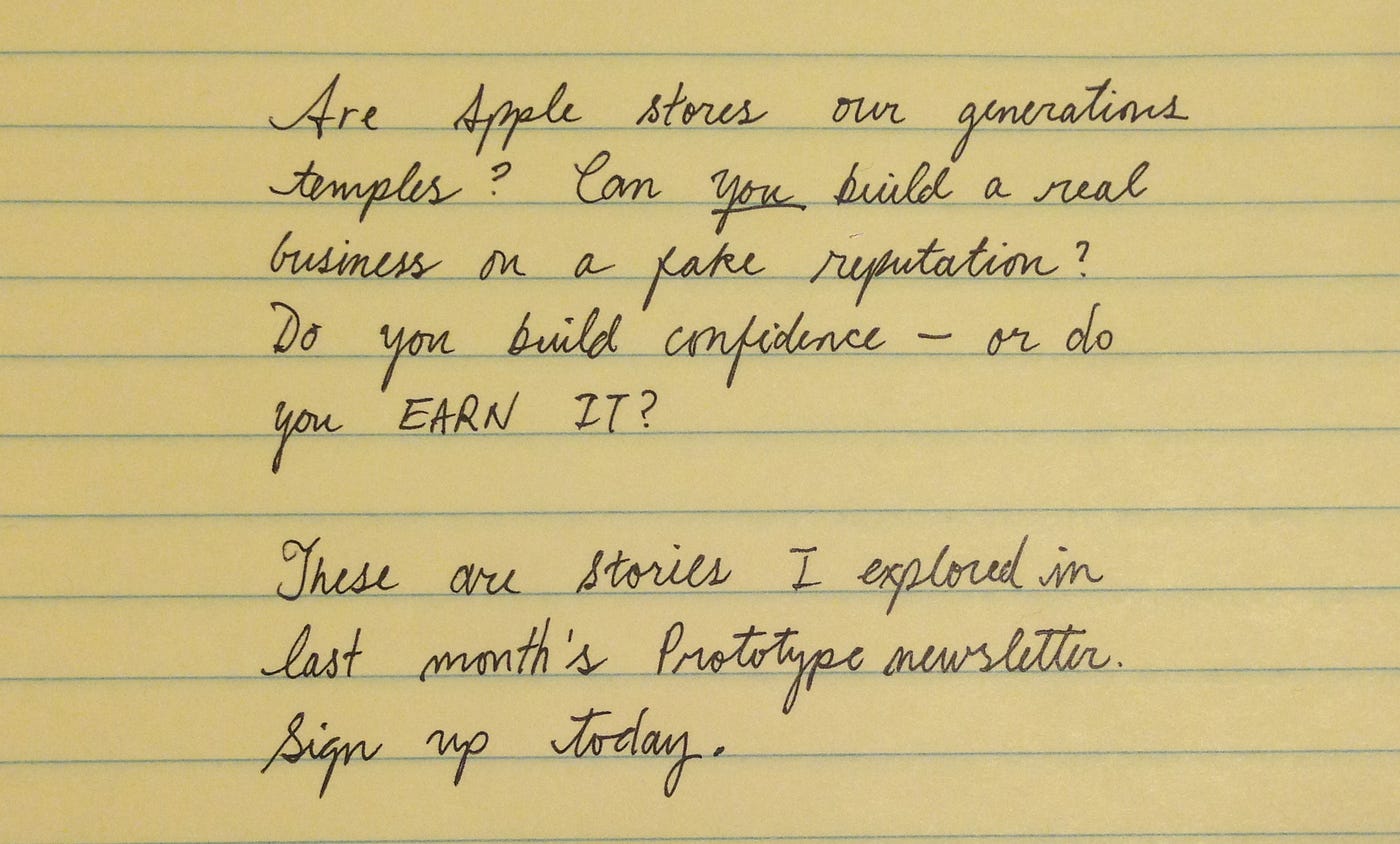 Are Apple stores our generations
temples? Can you build a real
business on a fake reputation?
Do you build confidence — or do
you EARN IT?
These are stories I explored in
last month's Prototype newsletter.
Sign up today.